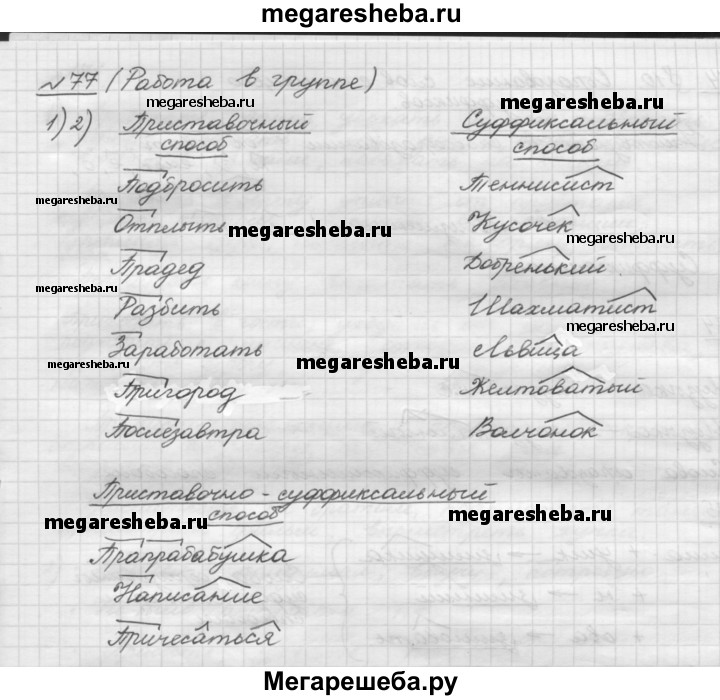 megaresheba.ru
№77 (Работа в группе)
megaresheba.ru
megaresheba.ru
1) 2) Приставочный способ
Суффиксальный способ
Подбросить
Теннисист
megaresheba.ru
Отплыть
megaresheba.ru
Кусочек
megaresheba.ru
Прадед
Добренький
megaresheba.ru
Разбить
Шахматист
megaresheba.ru
Заработать
Львица
megaresheba.ru
megaresheba.ru
Пригород
Желтоватый
Послезавтра
Волчонок
Приставочно-суффиксальный
способ
megaresheba.ru
megaresheba.ru
Прапрабабушка
Написание
Причесаться
Мегарешеба.ру